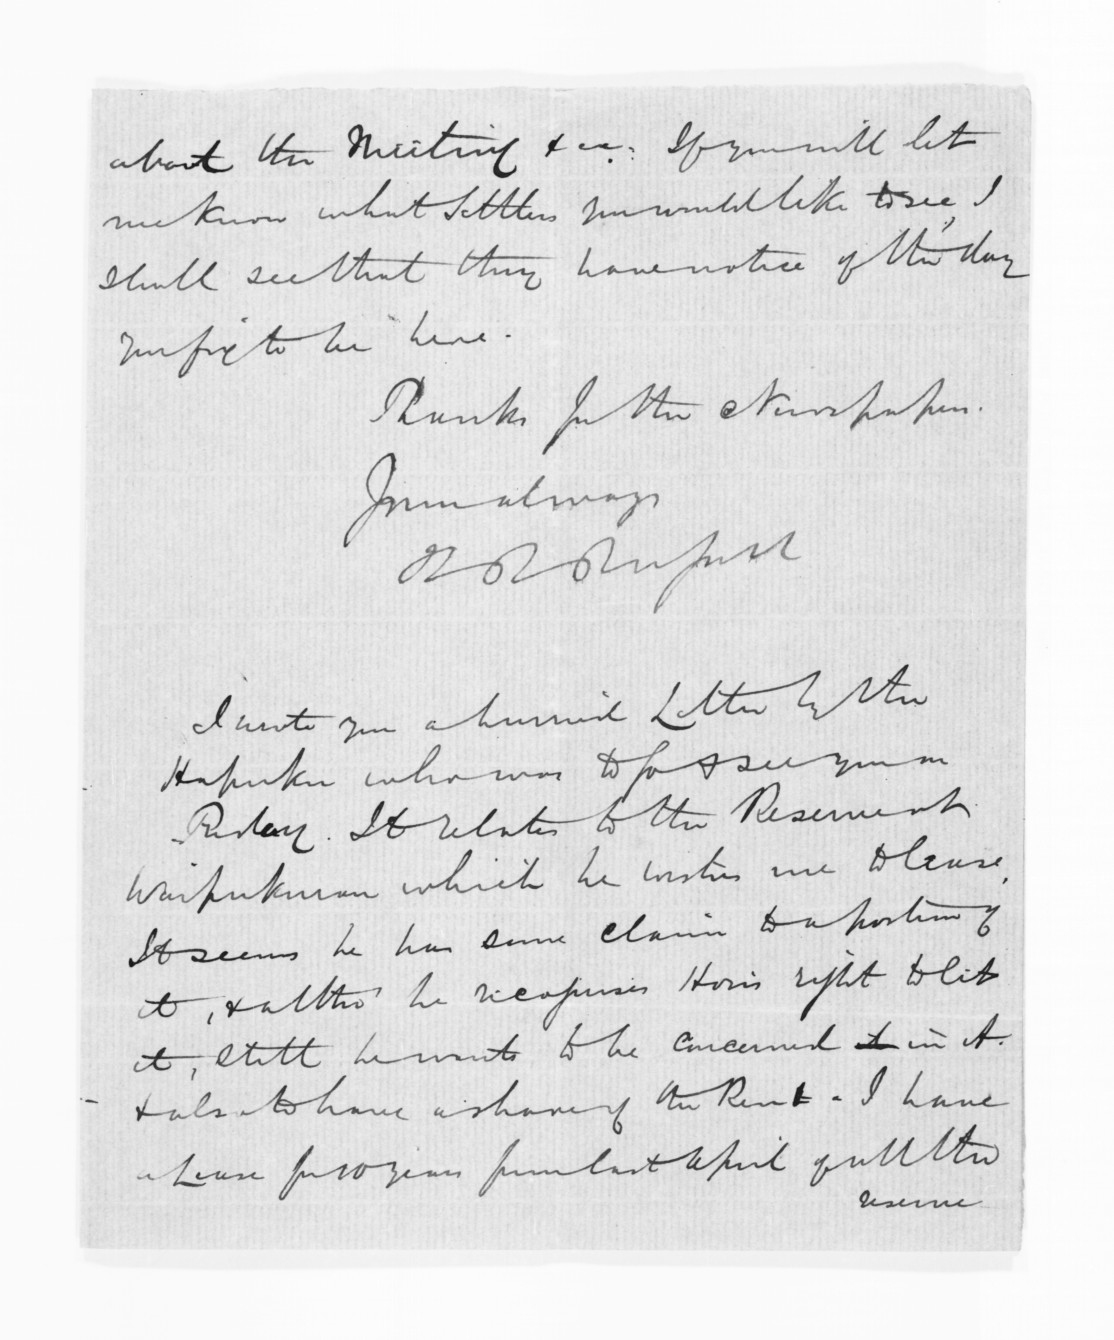 about the Meeting &ca. If you will let
me know what Settlers you would like to see, I
shall see that they have notice of the day
you fix to be here.
Thanks for the Newspaper.
Yours always
I wrote you a hurried Letter by the
Hapuku who was to go & see you on
Friday. It relates to the Reserve at
Waipukurau which he wishes me to lease,
It seems he has some claim to a portion of
it, & altho' he recognises Horis right to let
it, still he wants to be concerned in it.
& also to have a share of the Rent - I have
a Lease for 10 years from last April of all the
reserve